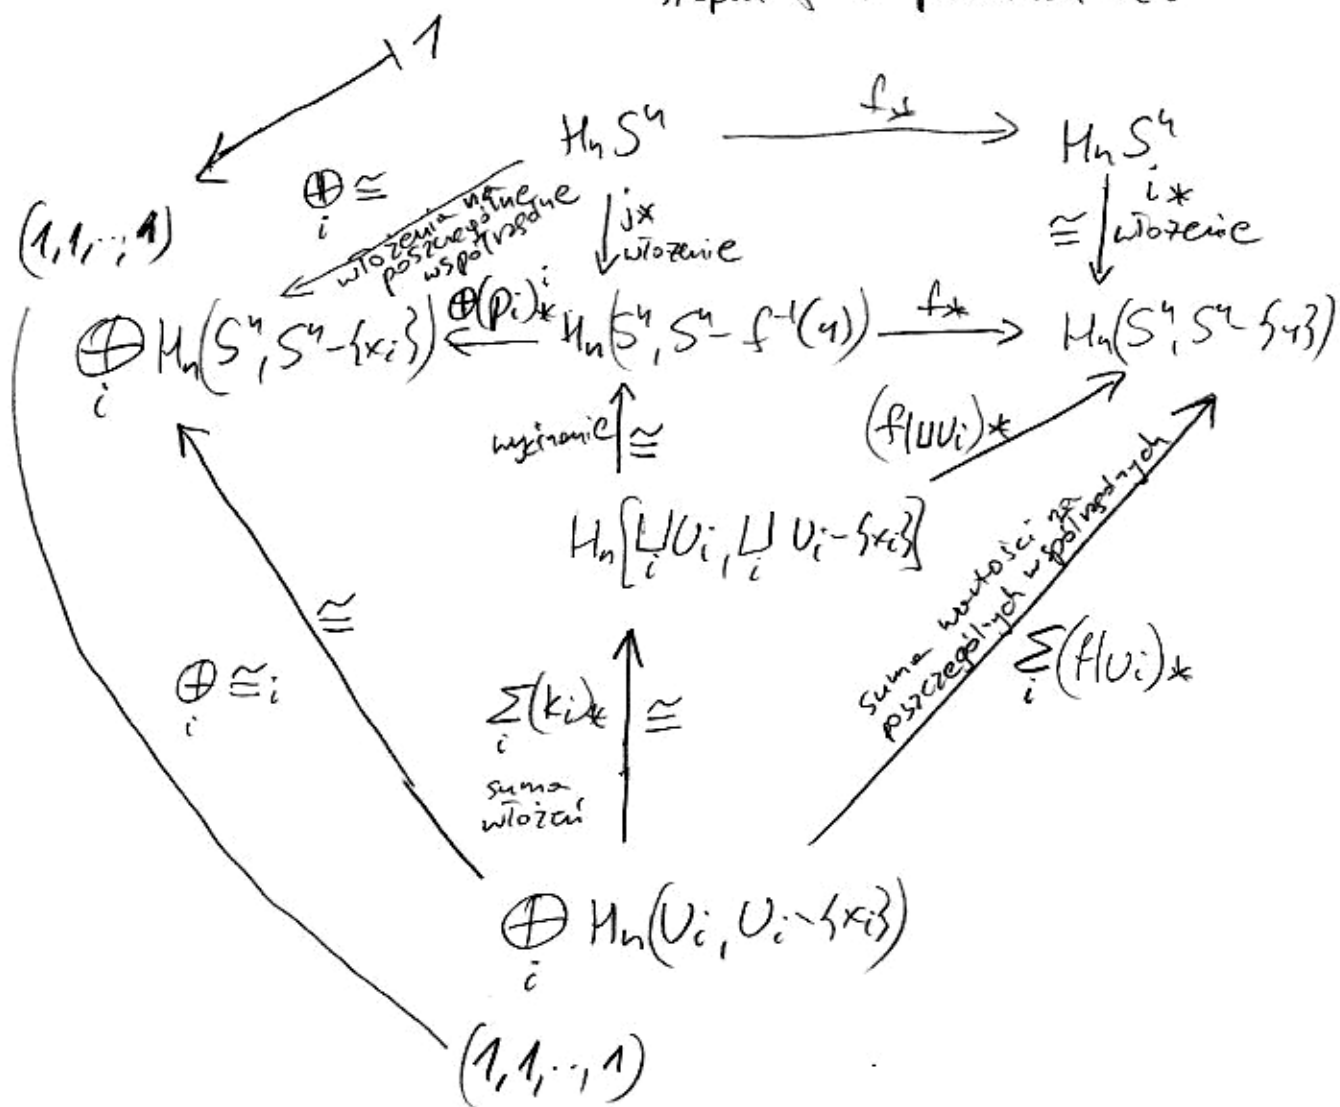 1
f_*
H_n S^n
H_n S^n
⊕_i ≅
włożenia na
poszczególne
współrzędne
j_*
włożenie
i_*
≅
włożenie
(1,1,..,1)
⊕_i H_n(S^n, S^n-{x_i})
⊕_i(p_i)_*
H_n(S^n, S^n-f^{-1}(y))
f_*
H_n(S^n, S^n-{y})
wycinanie
≅
(f|⊔U_i)_*
H_n[⊔_i U_i, ⊔_i U_i-{x_i}]
≅
⊕_i ≅_i
Σ_i(k_i)_*
≅
suma
włożeń
suma wartości na
poszczególnych współrzędnych
Σ_i(f|U_i)_*
⊕_i H_n(U_i, U_i-{x_i})
(1,1,..,1)